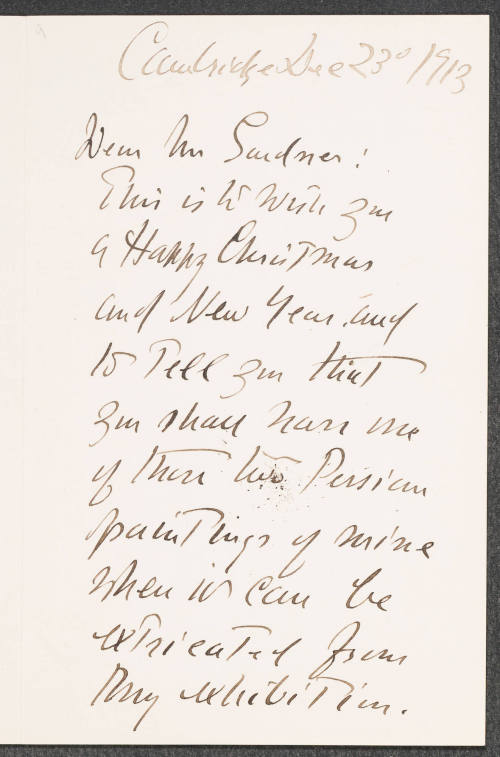 Cambridge Dec 23° 1913
Dear Mrs Gardner!
This is to wish you
a Happy Christmas
and New Year, and
to tell you that
you shall have one
of those two Persian
paintings of mine
when it can be
extricated from
my exhibition.